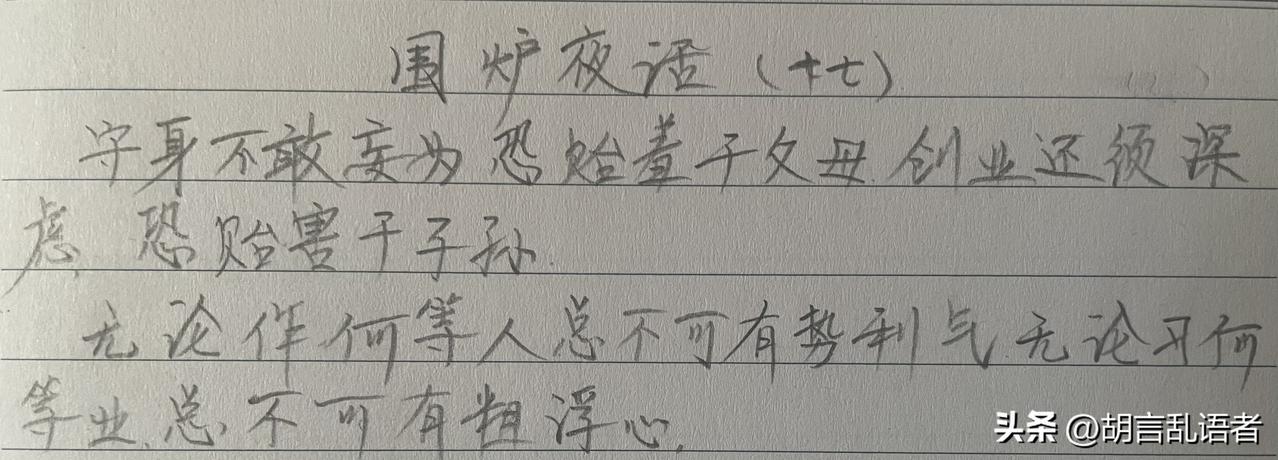 围炉夜话（十七）
守身不敢妄为恐贻羞于父母.创业还须深
虑,恐贻害于子孙.
无论作何等人总不可有势利气.无论习何
等业,总不可有粗浮心.
头条 @胡言乱语者